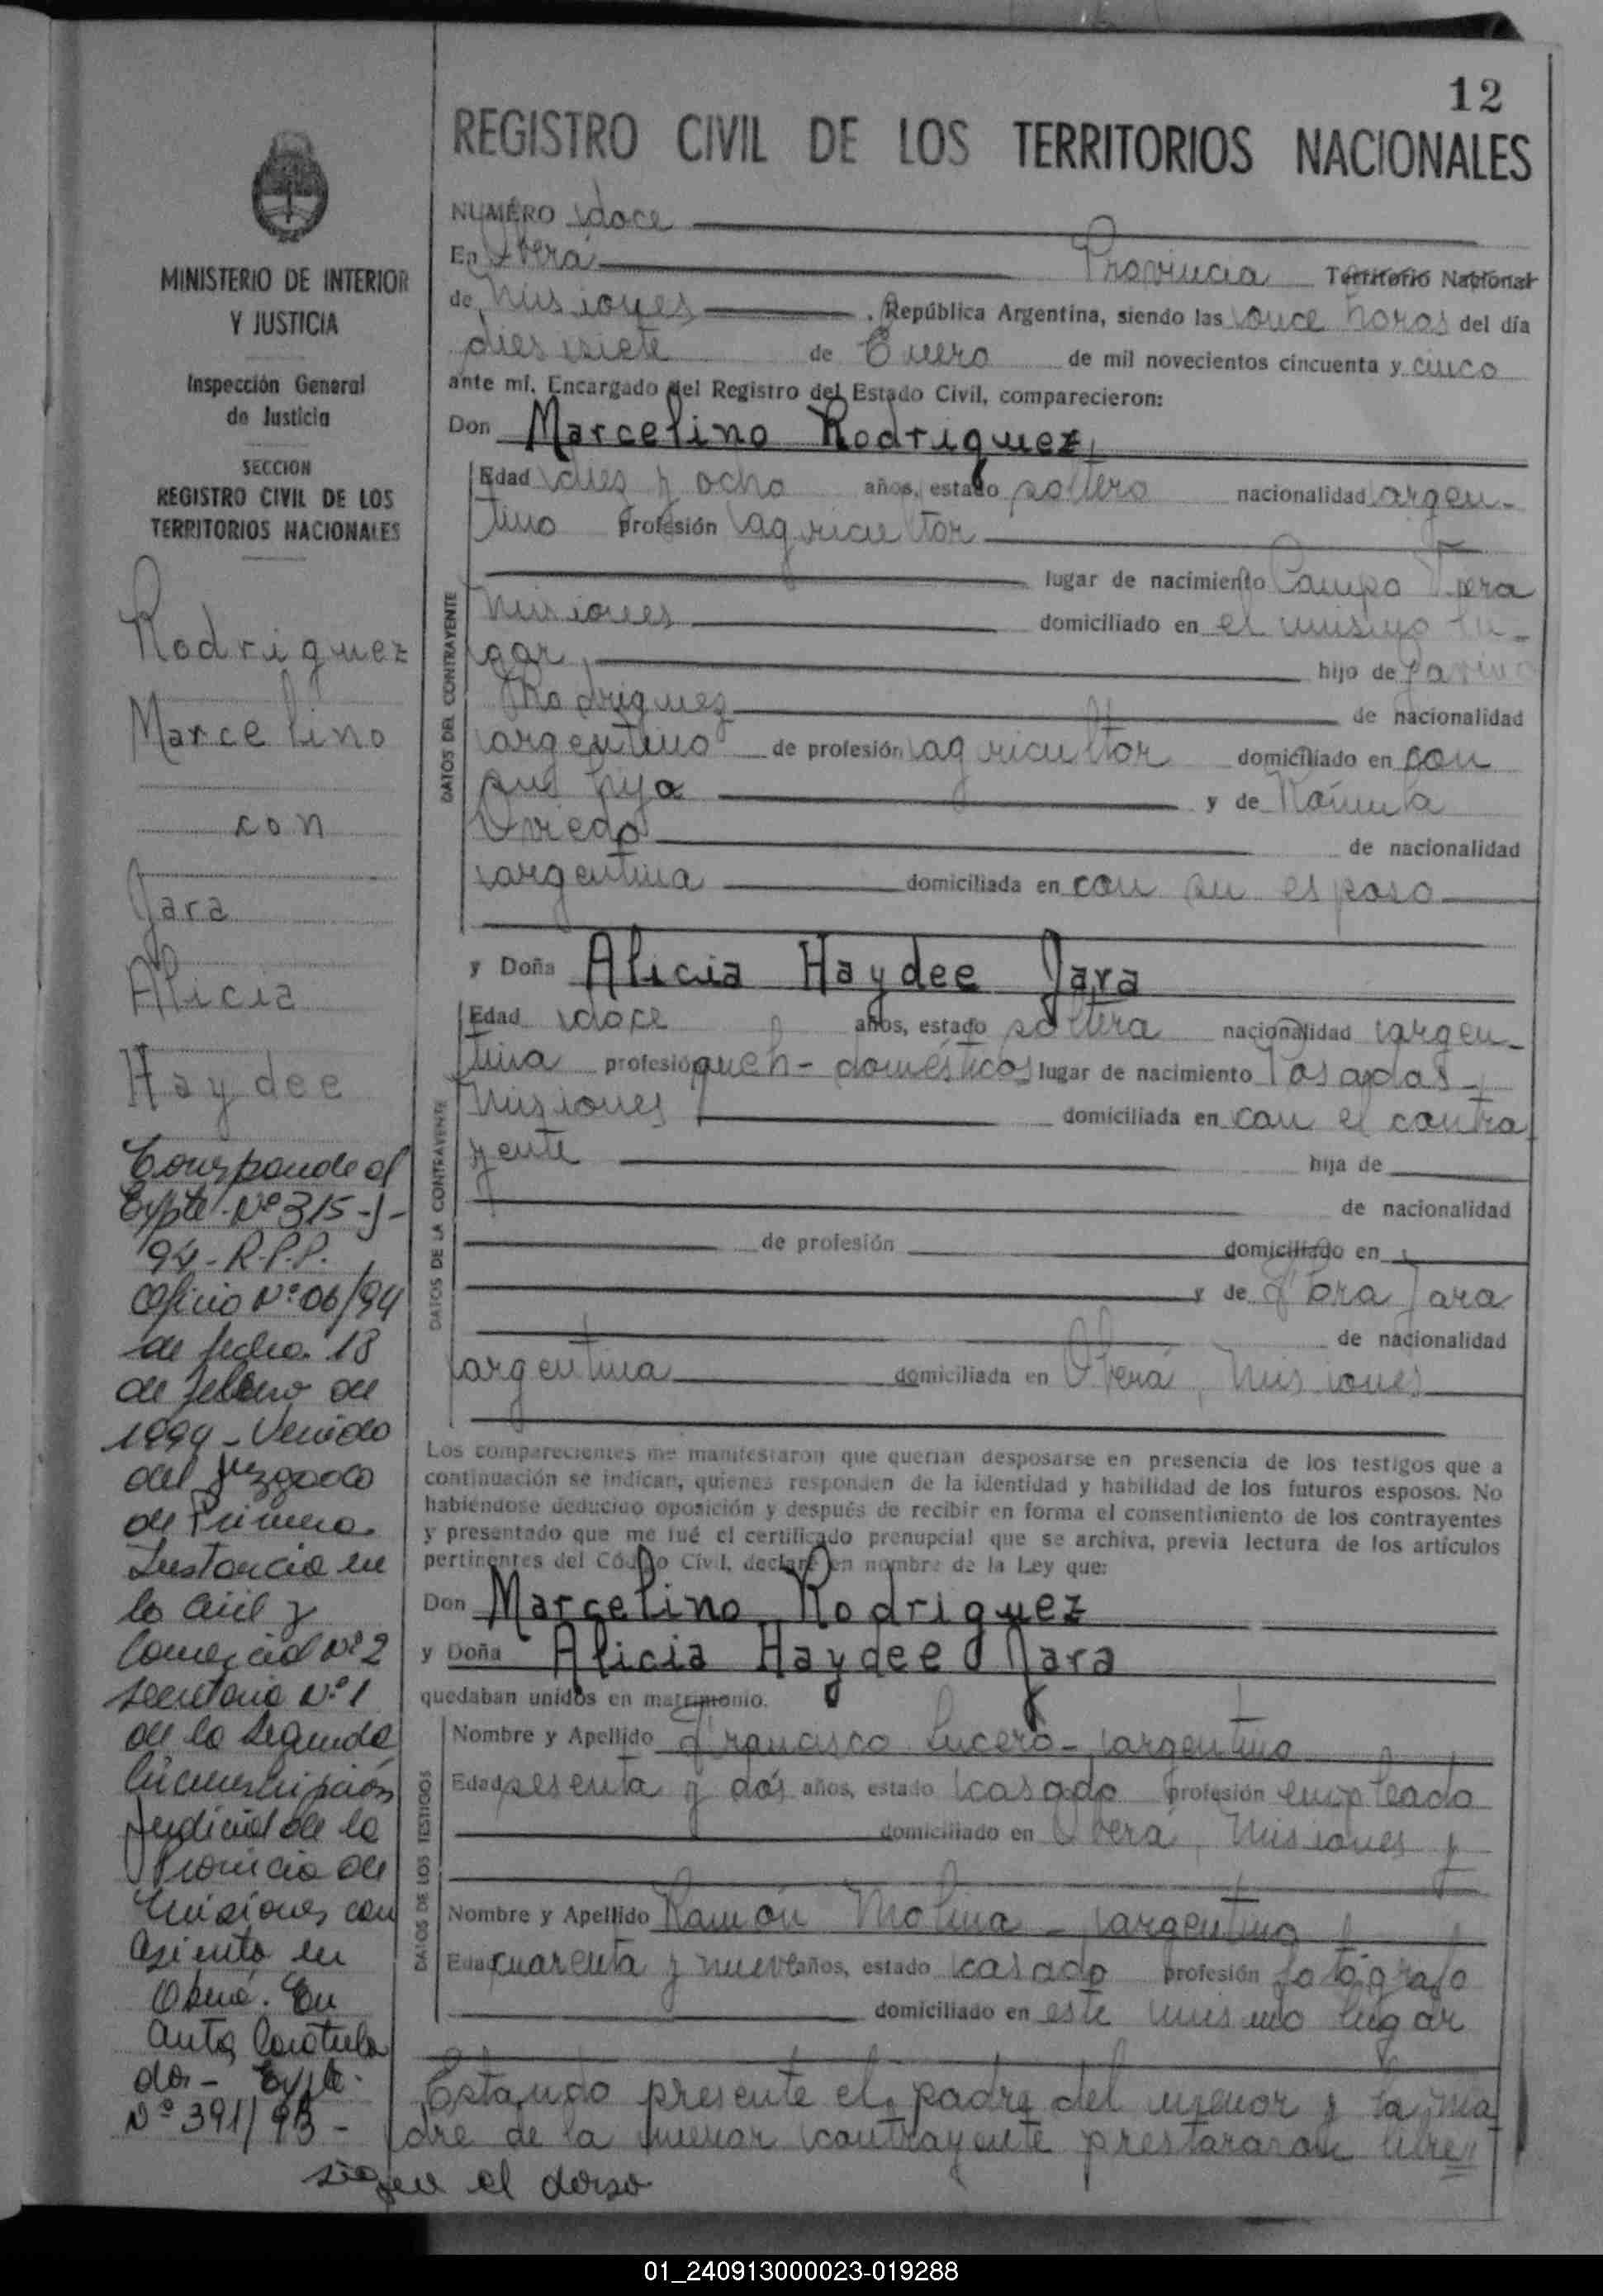 12
REGISTRO CIVIL DE LOS TERRITORIOS NACIONALES
MINISTERIO DE INTERIOR
Y JUSTICIA
Inspección General
de Justicia
SECCION
REGISTRO CIVIL DE LOS
TERRITORIOS NACIONALES
Rodriguez
Marcelino
con
Jara
Alicia
Haydee
Corresponde al
Expte. Nº 315-J-
94-R.P.P.
Oficio Nº 06/94
de fecha 18
de febrero de
1994 - Venido
del Juzgado
de Primera
Instancia en
lo Civil y
Comercial Nº 2
Secretaria Nº 1
de la Segunda
Circunscripción
Judicial de la
Provincia de
Misiones con
asiento en
Oberá. En
autos Caratula
dos - Expte.
Nº 391/93 -
NUMERO doce
En Oberá Provincia Territorio Nacional
de Misiones, República Argentina, siendo las once horas del día
dies siete de Enero de mil novecientos cincuenta y cinco
ante mí, Encargado del Registro del Estado Civil, comparecieron:
Don Marcelino Rodriguez,
DATOS DEL CONTRAYENTE
Edad dies y ocho años, estado soltero nacionalidad argen-
tino profesión agricultor
lugar de nacimiento Campo Viera
Misiones domiciliado en el mismo lu-
gar, hijo de
Rodriguez de nacionalidad
argentino de profesión agricultor domiciliado en con
su hijo y de Rómula
Oviedo de nacionalidad
argentina domiciliada en con su esposo
y Doña Alicia Haydee Jara
DATOS DE LA CONTRAYENTE
Edad doce años, estado soltera nacionalidad argen-
tina profesión queh- domésticos lugar de nacimiento Posadas-
Misiones domiciliada en con el contra
yente hija de
de nacionalidad
de profesión domiciliado en
y de Flora Jara
de nacionalidad
argentina domiciliada en Oberá, Misiones
Los comparecientes me manifestaron que querían desposarse en presencia de los testigos que a
continuación se indican, quienes responden de la identidad y habilidad de los futuros esposos. No
habiéndose deducido oposición y después de recibir en forma el consentimiento de los contrayentes
y presentado que me fué el certificado prenupcial que se archiva, previa lectura de los artículos
pertinentes del Código Civil, declaré en nombre de la Ley que:
Don Marcelino Rodriguez
y Doña Alicia Haydee Jara
quedaban unidos en matrimonio.
DATOS DE LOS TESTIGOS
Nombre y Apellido Francisco Lucero - argentino
Edad sesenta y dos años, estado casado profesión empleado
domiciliado en Oberá, Misiones y
Nombre y Apellido Ramón Molina - argentino
Edad cuarenta y nueve años, estado casado profesión fotógrafo
domiciliado en este mismo lugar
Estando presente el padre del menor y la ma
dre de la menor contrayente prestararon libre
sigue al dorso
01_240913000023-019288